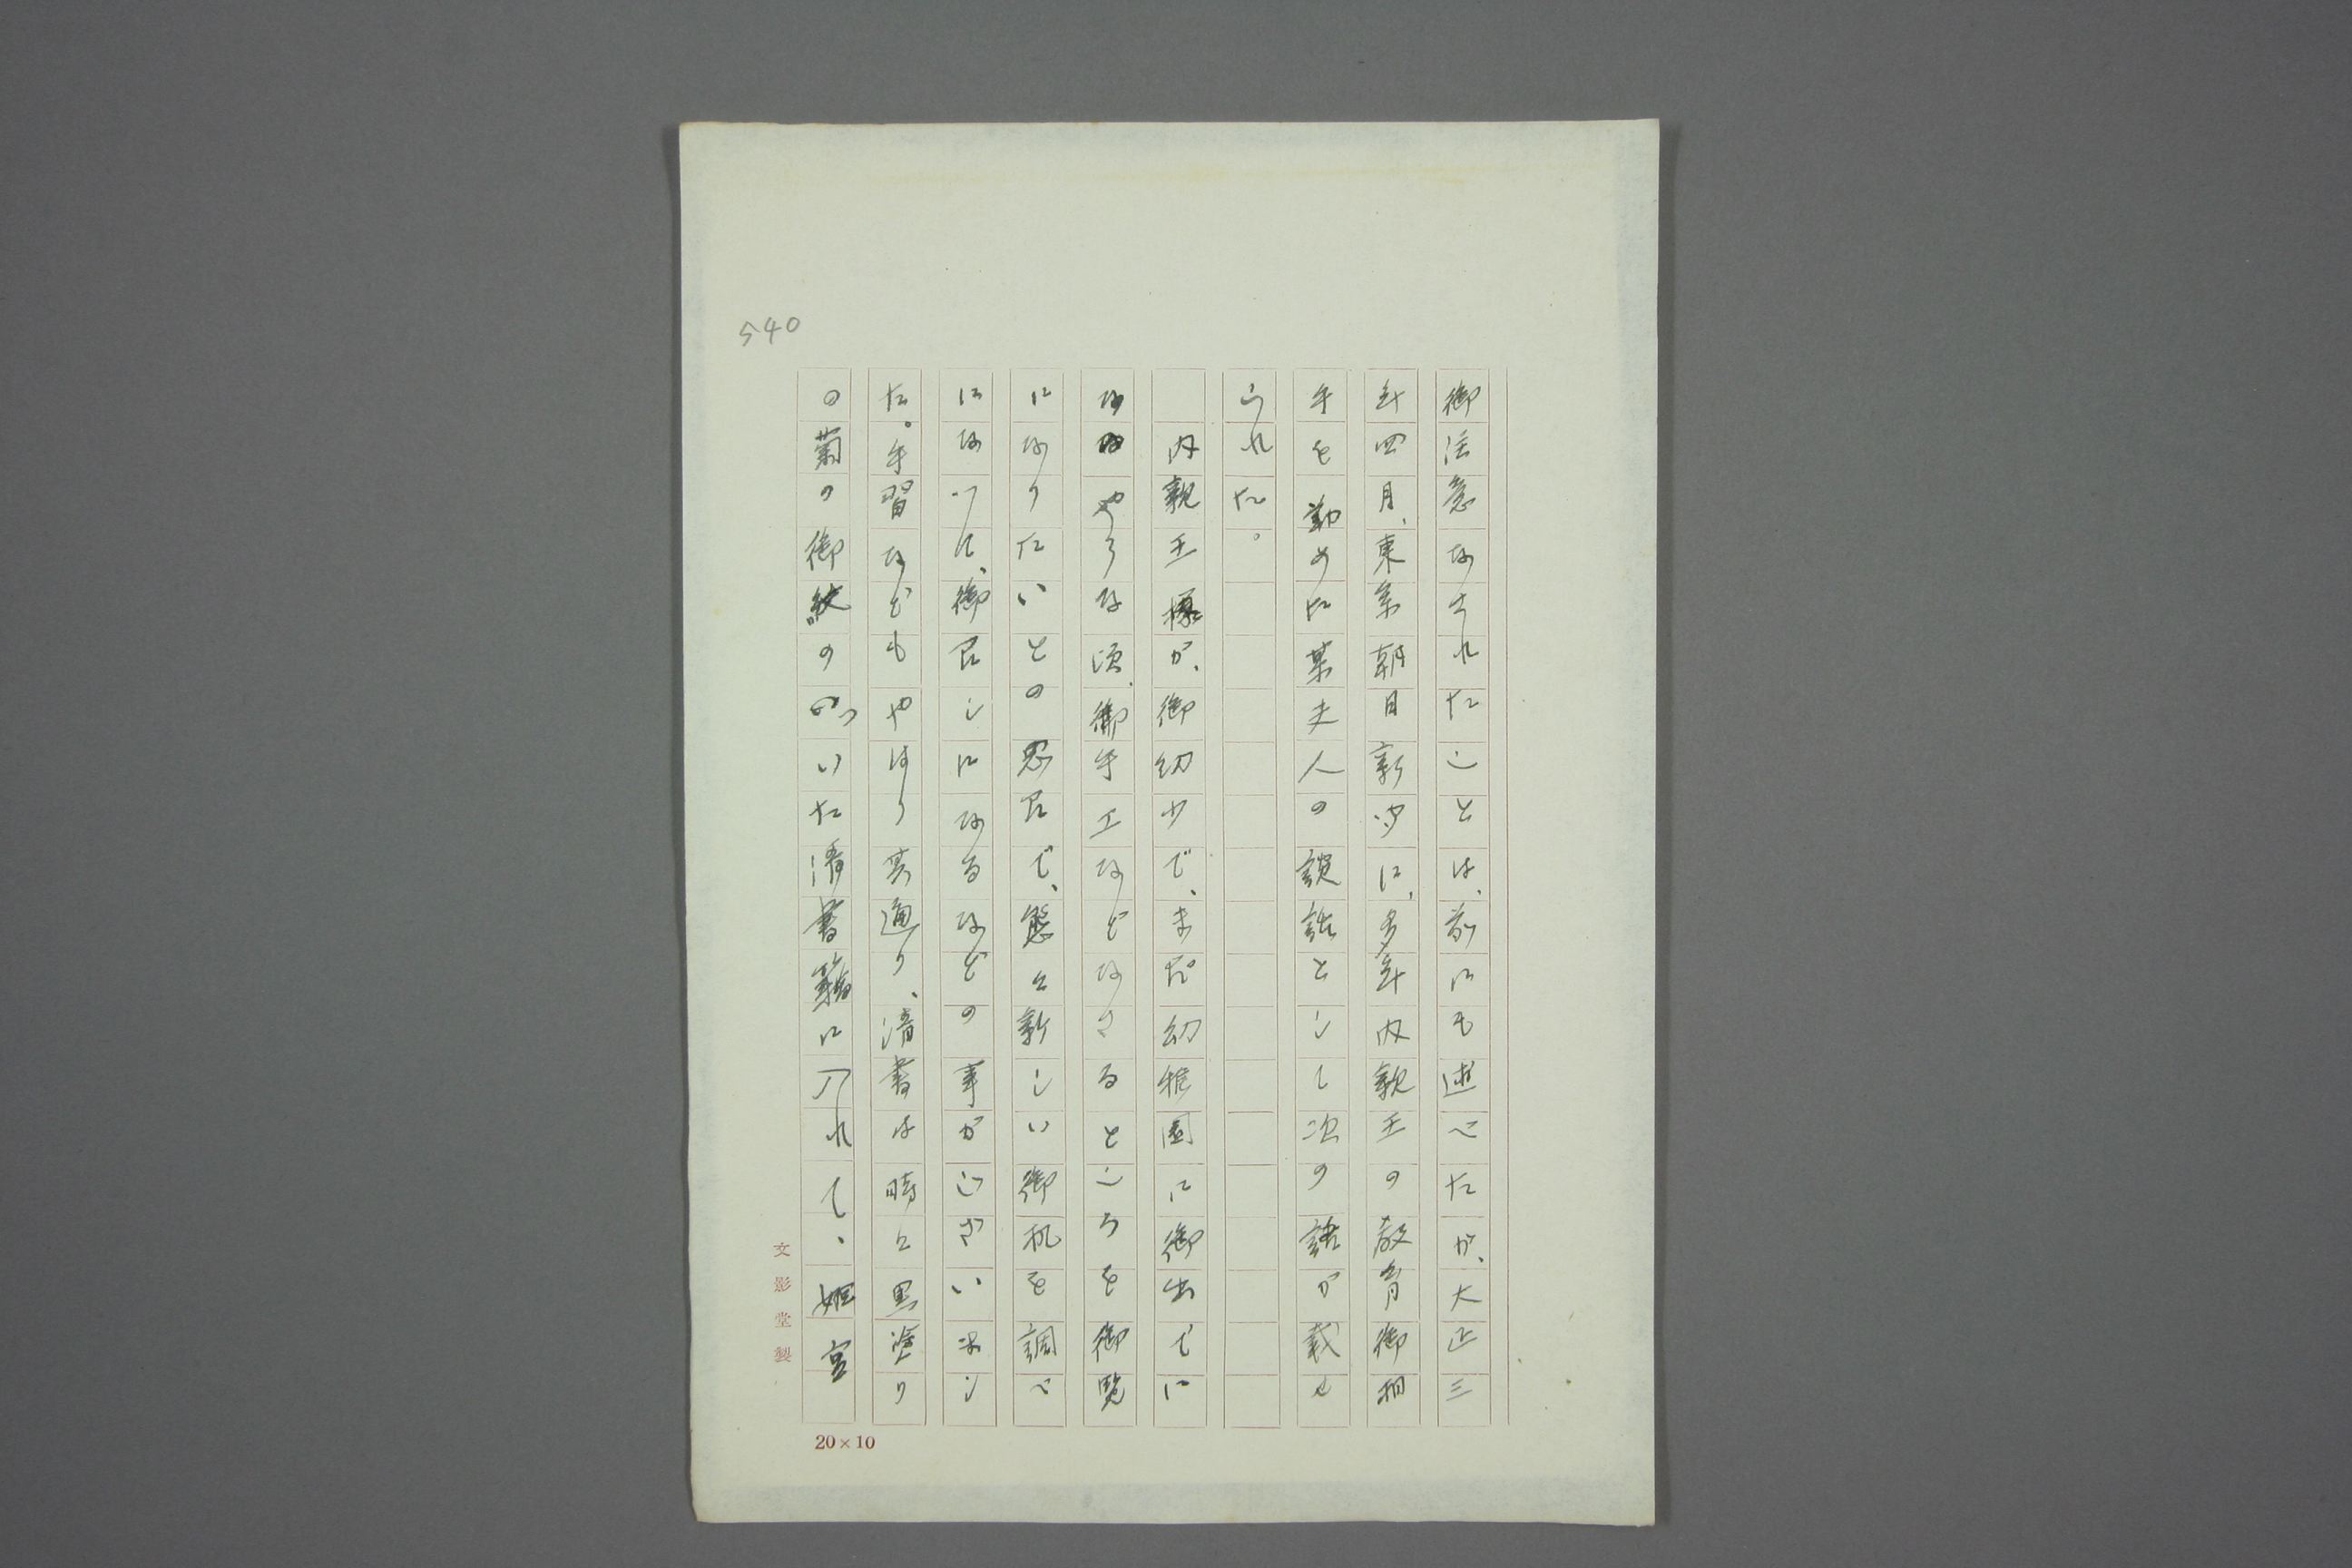 540
御注意なされたことは、前にも述べたが、大正三
年四月、東京朝日新聞に、多年内親王の教育御相
手を勤めた某夫人の談話として次の話が載せ
られた。
内親王様が、御幼少で、まだ幼稚園に御出でに
なるやうな頃、御手工などなさるところを御覧
になりたいとの思召で、態々新しい御机を調べ
になつて、御召しになるなどの事がございまし
た。手習などもやはり其通り、清書は時々黒塗り
の菊の御紋のついた清書籍に入れて、姫宮
文影堂製
20×10